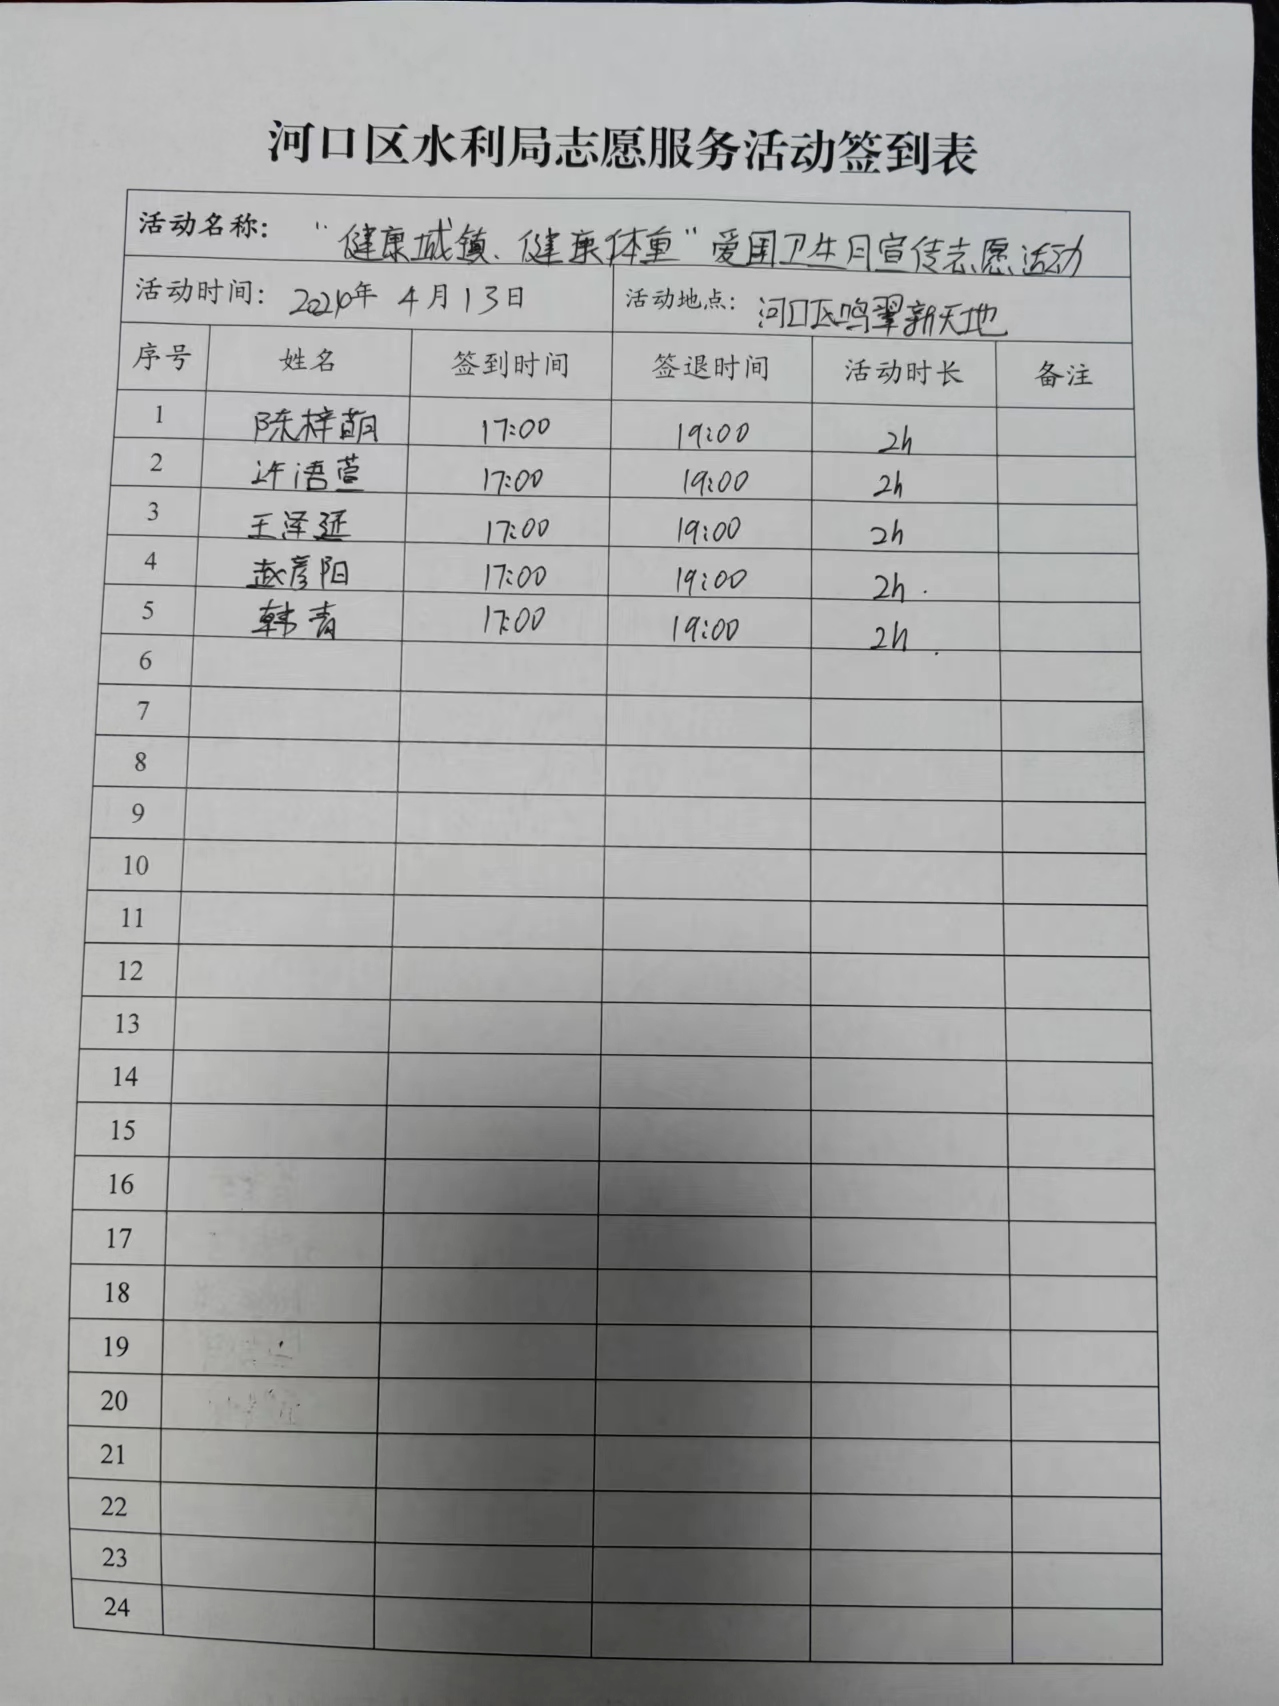 河口区水利局志愿服务活动签到表
活动名称: “健康城镇、健康体重”爱国卫生月宣传志愿活动
活动时间: 2024年 4月13日 活动地点: 河口区鸣翠新天地
序号 姓名 签到时间 签退时间 活动时长 备注
1 陈梓萌 17:00 19:00 2h
2 许语萱 17:00 19:00 2h
3 王泽延 17:00 19:00 2h
4 赵彦阳 17:00 19:00 2h
5 韩青 17:00 19:00 2h
6
7
8
9
10
11
12
13
14
15
16
17
18
19
20
21
22
23
24